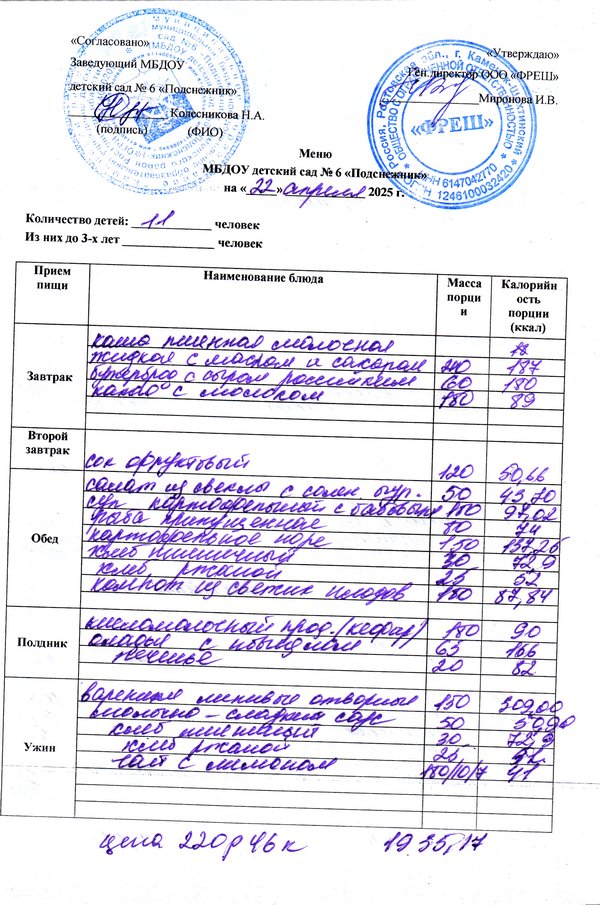 «Согласовано»
Заведующий МБДОУ
детский сад № 6 «Подснежник»
Колесникова Н.А.
(подпись) (ФИО)
«Утверждаю»
Ген. директор ООО «ФРЕШ»
Миронова И.В.
«ФРЕШ»
ИНН 6147042770
ОГРН 1246100032420
Меню
МБДОУ детский сад № 6 «Подснежник»
на « 22 » апреля 2025 г.
Количество детей: 11 человек
Из них до 3-х лет человек
Прием пищи Наименование блюда Масса порции Калорийность порции (ккал)
Завтрак
каша пшенная молочная
жидкая с маслом и сахаром 187
бутерброд с сыром российским 60 180
какао с молоком 180 89
Второй завтрак
сок фруктовый 120 50,66
Обед
салат из свеклы с солен. огур. 50 43,70
суп картофельный с бобовыми 97,02
рыба припущенная 80 74
картофельное пюре 150 137,26
хлеб пшеничный 30 72,9
хлеб ржаной 25 52
компот из свежих плодов 180 87,84
Полдник
кисломолочный прод. (кефир) 180 90
оладьи с повидлом 65 166
печенье 20 82
Ужин
вареники ленивые отворные 150 309,00
молочно-сладкий соус 50
хлеб пшенич 30 72,9
хлеб ржаной 25 52
чай с лимоном 180/10/7 41
цена 220р 46к 1935,17